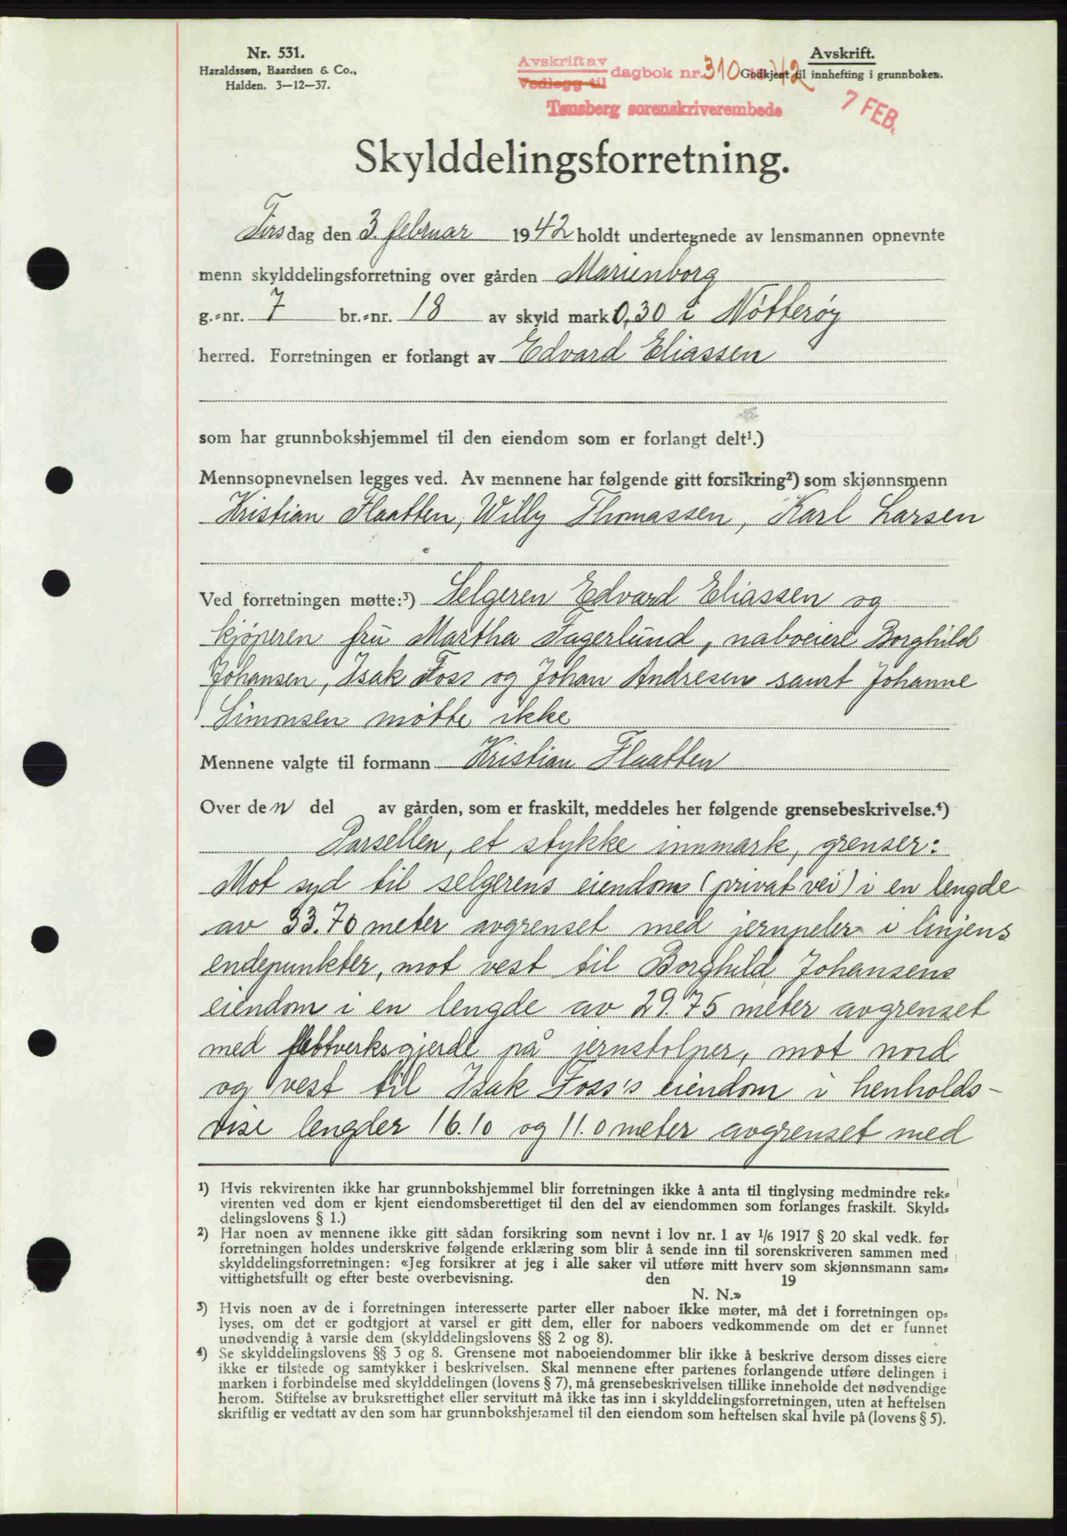 Nr. 531.
Haraldssøn, Baardsen & Co.,
Halden. 3—12—37.
Avskrift av
Vedlegg til
dagbok nr. 310 /42
Tønsberg sorenskriverembede
Avskrift.
Godkjent til innhefting i grunnboken.
7 FEB.
Skylddelingsforretning.
Tirsdag den 3. februar 1942 holdt undertegnede av lensmannen opnevnte
menn skylddelingsforretning over gården Marienborg
g.-nr. 7 br.-nr. 18 av skyld mark 0,30 i Nøtterøy
herred. Forretningen er forlangt av Edvard Eliassen
som har grunnbokshjemmel til den eiendom som er forlangt delt¹.)
Mennsopnevnelsen legges ved. Av mennene har følgende gitt forsikring²) som skjønnsmenn
Kristian Flaatten, Willy Thomassen, Karl Larsen
Ved forretningen møtte:³) Selgeren Edvard Eliassen og
kjøperen fru Martha Fagerlund, naboeiere Borghild
Johansen, Isak Foss og Johan Andresen samt Johanne
Simonsen møtte ikke
Mennene valgte til formann Kristian Flaatten
Over den del av gården, som er fraskilt, meddeles her følgende grensebeskrivelse.⁴)
Parsellen, et stykke innmark, grenser:
Mot syd til selgerens eiendom (privat vei) i en lengde
av 33.70 meter avgrenset med jernpeler i linjens
endepunkter, mot vest til Borghild Johansens
eiendom i en lengde av 29.75 meter avgrenset
med flettverksgjerde på jernstolper, mot nord
og vest til Isak Foss's eiendom i henholds-
vise lengder 16.10 og 11.0 meter avgrenset med
¹) Hvis rekvirenten ikke har grunnbokshjemmel blir forretningen ikke å anta til tinglysing medmindre rek-
virenten ved dom er kjent eiendomsberettiget til den del av eiendommen som forlanges fraskilt. Skyld-
delingslovens § 1.)
²) Har noen av mennene ikke gitt sådan forsikring som nevnt i lov nr. 1 av 1/6 1917 § 20 skal vedk. før
forretningen holdes underskrive følgende erklæring som blir å sende inn til sorenskriveren sammen med
skylddelingsforretningen: «Jeg forsikrer at jeg i alle saker vil utføre mitt hverv som skjønnsmann sam-
vittighetsfullt og efter beste overbevisning. den 19
N. N.»
³) Hvis noen av de i forretningen interesserte parter eller naboer ikke møter, må det i forretningen op-
lyses, om det er godtgjort at varsel er gitt dem, eller for naboers vedkommende om det er funnet
unødvendig å varsle dem (skylddelingslovens §§ 2 og 8).
⁴) Se skylddelingslovens §§ 3 og 8. Grensene mot naboeiendommer blir ikke å beskrive dersom disses eiere
ikke er tilstede og samtykker i beskrivelsen. Skal mennene efter partenes forlangende utføre delingen i
marken i forbindelse med skylddelingen (lovens § 7), må grensebeskrivelsen tillike inneholde det nødvendige
herom. Stiftelse av bruksrettighet eller servitutt må ikke tas inn i skylddelingsforretningen, uten at heftelsen
skriftlig er vedtatt av den som har grunnbokshjemmel til den eiendom som heftelsen skal hvile på (lovens § 5).